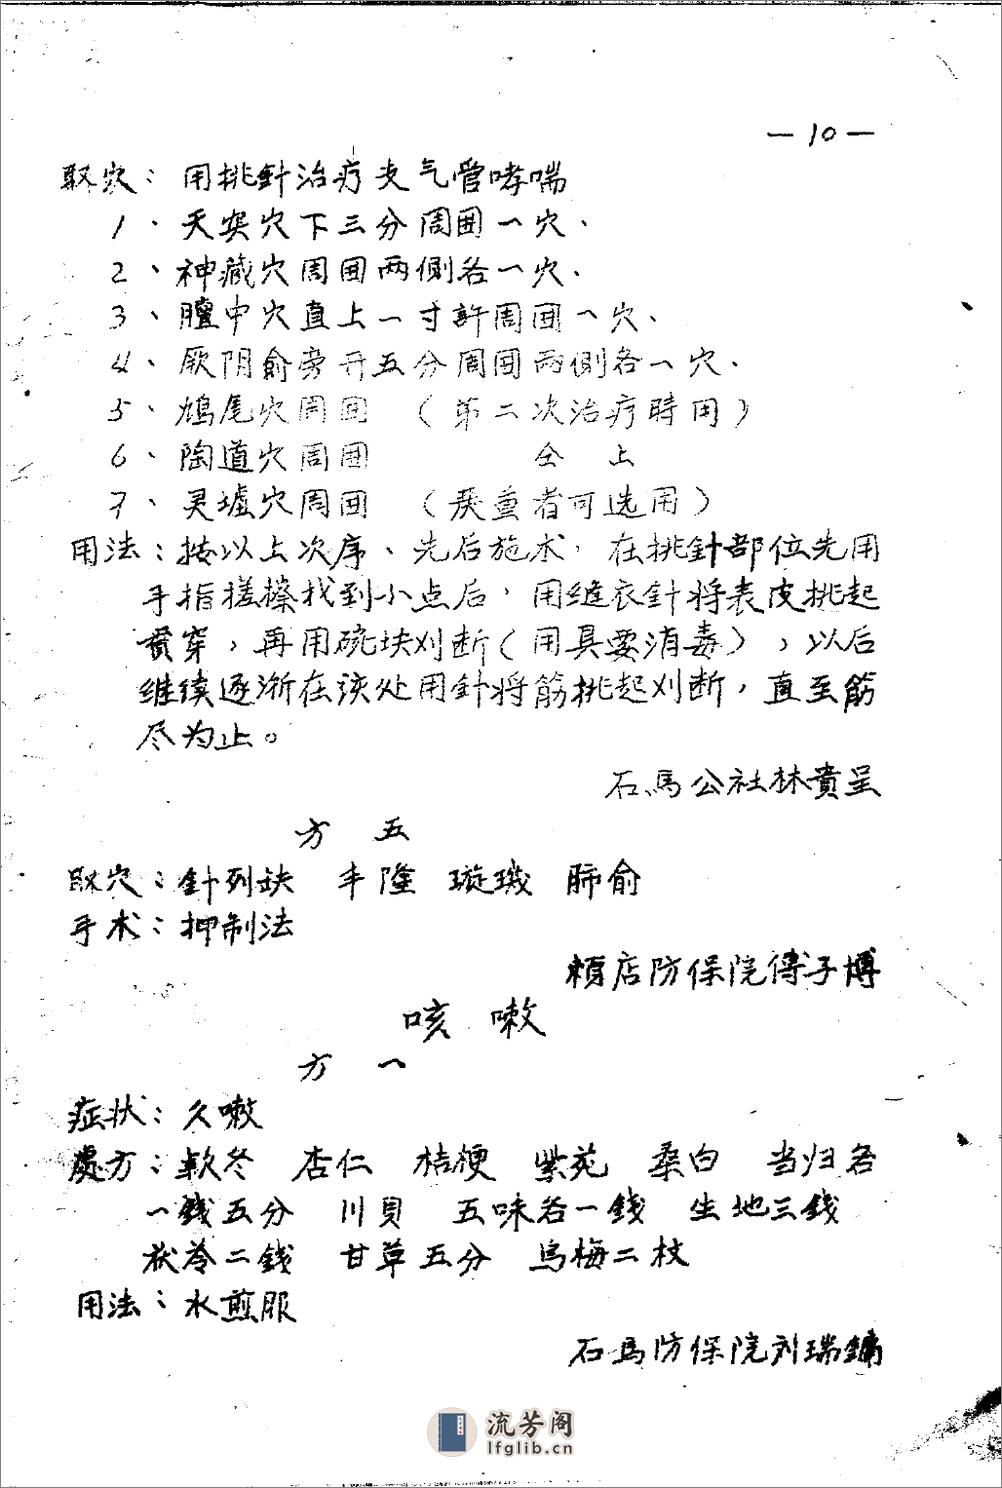 —10—
取穴：用挑針治疗支气管哮喘
1、天突穴下三分周囲一穴、
2、神藏穴周囲两侧各一穴、
3、膻中穴直上一寸許周囲一穴、
4、厥阴俞旁开五分周囲两侧各一穴、
5、鳩尾穴周囲 （第二次治疗時用）
6、陶道穴周囲 仝上
7、灵墟穴周囲 （严重者可选用）
用法：按以上次序、先后施术，在挑針部位先用
手指搓擦找到小点后，用缝衣針将表皮挑起
贯穿，再用碗块刈断（用具要消毒），以后
继续逐渐在该处用針将筋挑起刈断，直至筋
尽为止。
石馬公社林貴呈
方 五
取穴：針列缺 丰隆 璇璣 肺俞
手术：抑制法
賴店防保院傅子博
咳 嗽
方 一
症状：久嗽
處方：款冬 杏仁 桔梗 紫苑 桑白 当归各
一錢五分 川貝 五味各一錢 生地三錢
茯苓二錢 甘草五分 烏梅二枝
用法：水煎服
石馬防保院刘瑞鏞
流芳阁
lfglib.cn